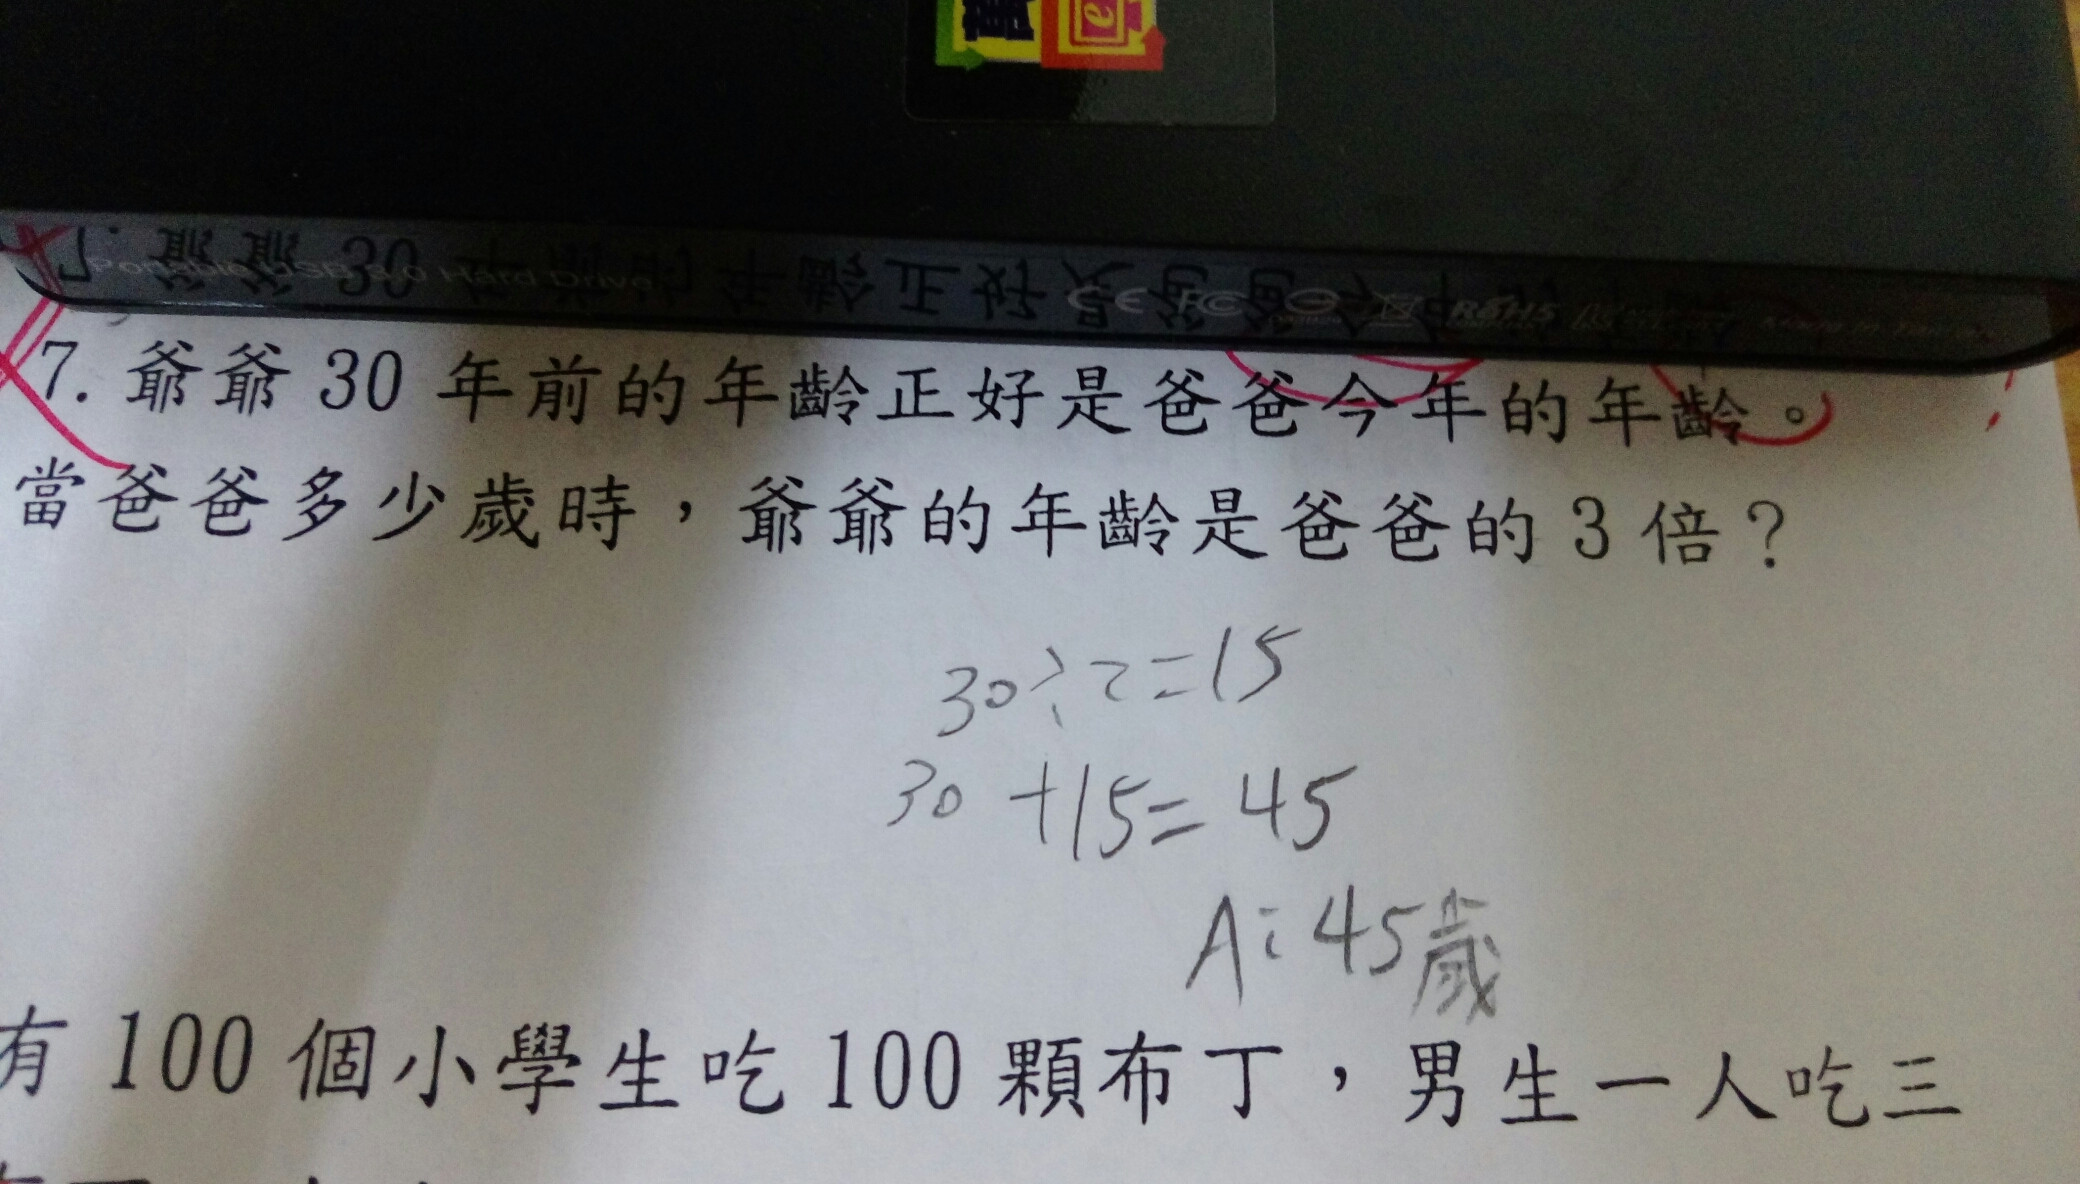 Portable USB 3.0 Hard Drive
CE FC RoHS
7. 爺爺 30 年前的年齡正好是爸爸今年的年齡。
當爸爸多少歲時，爺爺的年齡是爸爸的 3 倍？
30÷2=15
30+15=45
A:45歲
有 100 個小學生吃 100 顆布丁，男生一人吃三